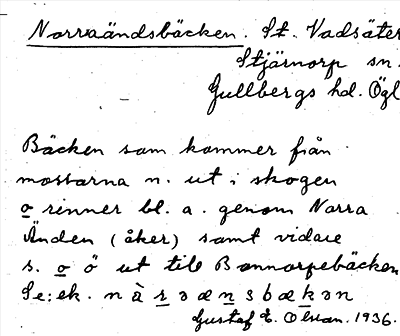 Norraändsbäcken. St. Vadsäter
Stjärnorp sn.
Gullbergs hd. Ögl
Bäcken som kommer från
mossarna n. ut i skogen
o rinner bl. a. genom Norra
Änden (åker) samt vidare
s. o ö ut till Bonnorpebäcken
Se: ek. nàrəænsbækən
Gustaf E. Olsson. 1936.